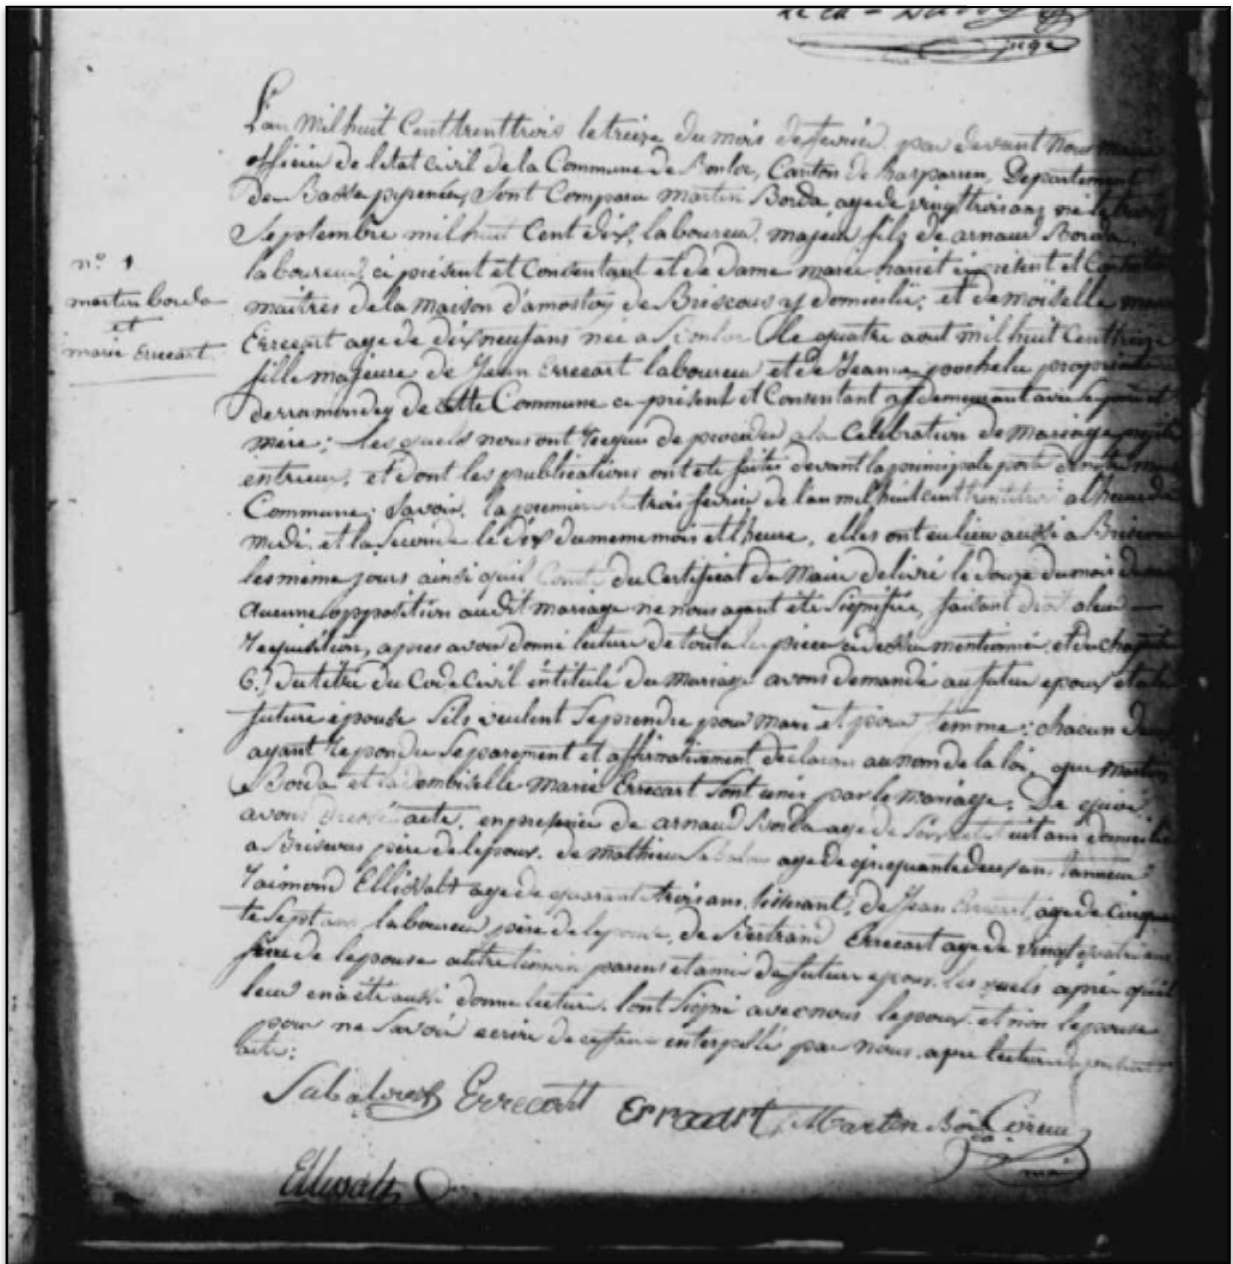 juge
L'an mil huit Cent trent trois le treize du mois de fevrier par devant Nous maire
officier de l'état civil de la Commune de Bonloc, Canton de hasparren, Departement
de Basse pyrenées, sont Comparu martin Borda age de vingt trois ans né le trois
Septembre mil huit Cent dix, laboureur, majeur fils de arnaud Borda,
laboureur ci présent et Consentant et de dame marie hariet ci présent et
maitres de la maison d'amostoy de Briscous y domicilié; et demoiselle marie
Errecart age de dix neuf ans née a Bonloc le quatre aout mil huit Cent treize
fille majeure de Jean Errecart laboureur et de Jeanne pochelu
derramondey de cette Commune ci présent et Consentant y demeurant avec se père et
mère; lesquels nous ont requis de proceder a la Celebration de mariage projeté
entr'eux, et dont les publications ont été faites devant la principale porte de notre
Commune; Savoir, la premiere le trois fevrier de l'an mil huit cent trent trois a l'heure de
midi, et la seconde le dix du meme mois et l'heure, elles ont eu lieu aussi a Briscous
les même jours ainsi qu'il du Certificat du Maire delivré le douze du mois
Aucune opposition audit mariage ne nous ayant été signifiée, faisant droit a leur
requisition, apres avoir donné lecture de toute les piece ci dessus mentionné et du chapitre
6. du titre du Code Civil intitulé du mariage avons demandé au futur epoux et a la
future épouse s'ils veulent se prendre pour mari et pour femme; chacun d'eux
ayant repondu separement et affirmativement declarons au nom de la loi, que martin
Borda et la demoiselle marie Errecart sont unis par le mariage; De quoi
avons dressé acte, en presence de arnaud Borda age de soixante huit ans domicilié
a Briscous père de lepoux, de mathieu age de cinquante deux ans tanneur
raimond Ellissalt age de quarant trois ans, tisserant, de Jean Errecart, age de cinquan
te sept ans laboureur père de lepouse, de Bertrand Errecart age de vingt quatre ans
frere de lepouse temoin parens et ami de future epoux, les quels après qu'il
leur en a été aussi donné lecture, l'ont signé avec nous lepoux et non lepouse
pour ne savoir ecrire de ce faire interpellé par nous apre lecture du present
acte:
n.º 1
martin borda
et
marie Errecart
Errecart Errecart Martin Borda
maire
Ellissalt